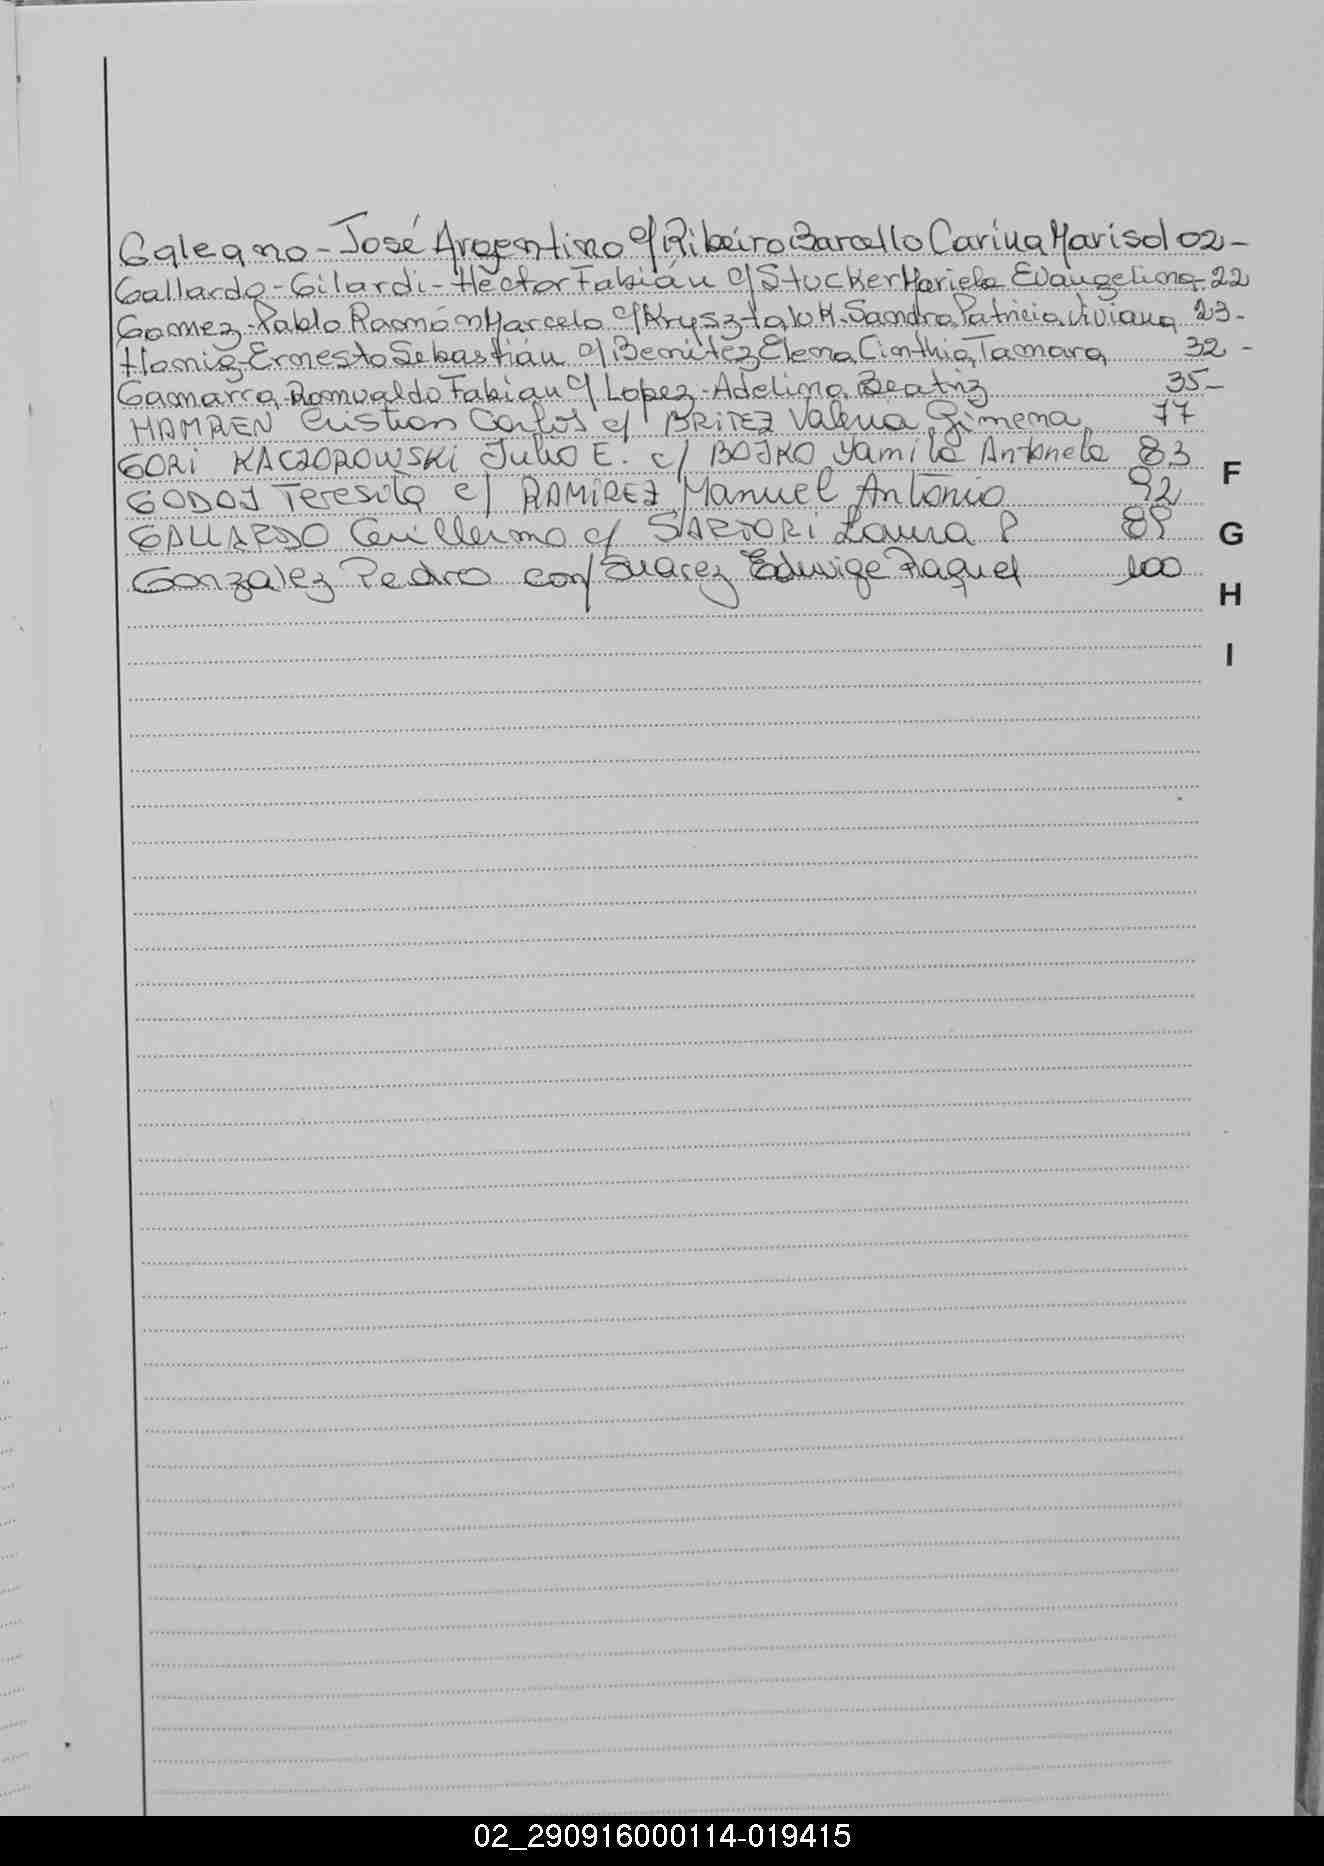 Galeano - José Argentino c/ Ribeiro Barcello Carina Marisol 02 -
Gallardo - Gilardi - Héctor Fabián c/ Stucker Mariela Evangelina - 22
Gomez - Pablo Ramón Marcelo c/ Krysztalo K. Sandra Patricia Viviana 23 -
Hornig - Ernesto Sebastián c/ Benitez Elena Cinthia Tamara 32 -
Gamarra Romualdo Fabian c/ Lopez - Adelina Beatriz 35 -
HAMREN Cristian Carlos c/ BRITEZ Valeria Gimena 77
GORI KACZOROWSKI Julio E. c/ BOJKO Yamila Antonela 83
F
GODOJ Teresita c/ RAMIREZ Manuel Antonio 92
GALLARDO Guillermo c/ SARTORI Laura P 89
G
Gonzalez Pedro con/ Suarez Eduvige Raquel 100
H
I
02_290916000114-019415